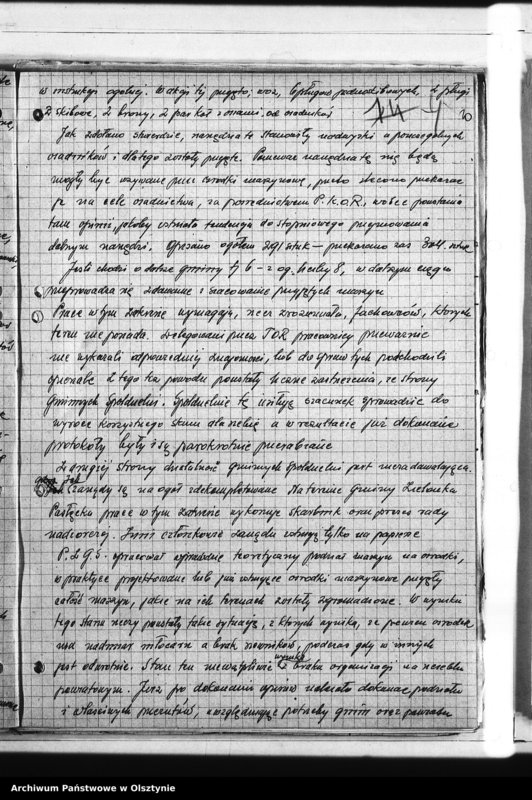 w instrukcji ogólnej. W akcji tej przyjęto, wóz, 6 pługów jednoskibowych, 2 pługi
2 skibowe, 2 brony, 2 parki z osiami, od ośrodków
10
Jak zdołano stwierdzić, narzędzia te stanowiły nadwyżki u poszczególnych
osadników i dlatego zostały przyjęte. Ponieważ narzędzia te nie będą
mogły być używane przez ośrodki maszynowe, przeto zlecono przekazać
je na cele osadnictwa, za pośrednictwem P.K.O.R., wobec powstania
tam opinii, jakoby istniała tendencja do stopniowego przejmowania
dobrych narzędzi. Opisano ogółem 291 sztuk — przekazano zaś sztuk
Jeśli chodzi o dalsze gminy tj 6 – z og. liczby 8, w dalszym ciągu
przeprowadza się zdawanie i szacowanie przyjętych maszyn
Prace w tym zakresie wymagają, rzecz zrozumiała, fachowców, których
teren nie posiada. Delegowani przez TOR pracownicy przeważnie
nie wykazali odpowiedniej znajomości, lub do spraw tych podchodzili
opieszale z tego też powodu powstały liczne zastrzeżenia, ze strony
Gminnych Spółdzielni. Spółdzielnie te usiłują szacunek sprowadzić do
wysoce korzystnego stanu dla siebie a w rezultacie już dokonane
protokóły były i są parokrotnie przerabiane
Z drugiej strony działalność Gminnych Spółdzielni jest niezadawalająca.
Zarządy są na ogół zdekompletowane Na terenie gminy Zielonka
Pasłęcka prace w tym zakresie wykonuje skarbnik oraz prezes rady
nadzorczej. Inni członkowie zarządu istnieją tylko na papierze
P.Z.G.S. opracował wprawdzie teoretyczny podział maszyn na ośrodki,
w praktyce projektowane lub już istniejące ośrodki maszynowe przyjęły
całość maszyn, jakie na ich terenach zostały zgromadzone. W wyniku
tego stanu rzeczy powstały takie sytuacje, z których wynika, że pewien ośrodek
ma nadmiar młocarń a brak siewników, podczas gdy w innych
jest odwrotnie. Stan ten niewątpliwie wynika z braku organizacji na szczeblu
powiatowym. Jeszcze po dokonaniu opisów należało dokonać podziału
i właściwych przerzutów, uwzględniając potrzeby gmin oraz powiatu
Archiwum Państwowe w Olsztynie